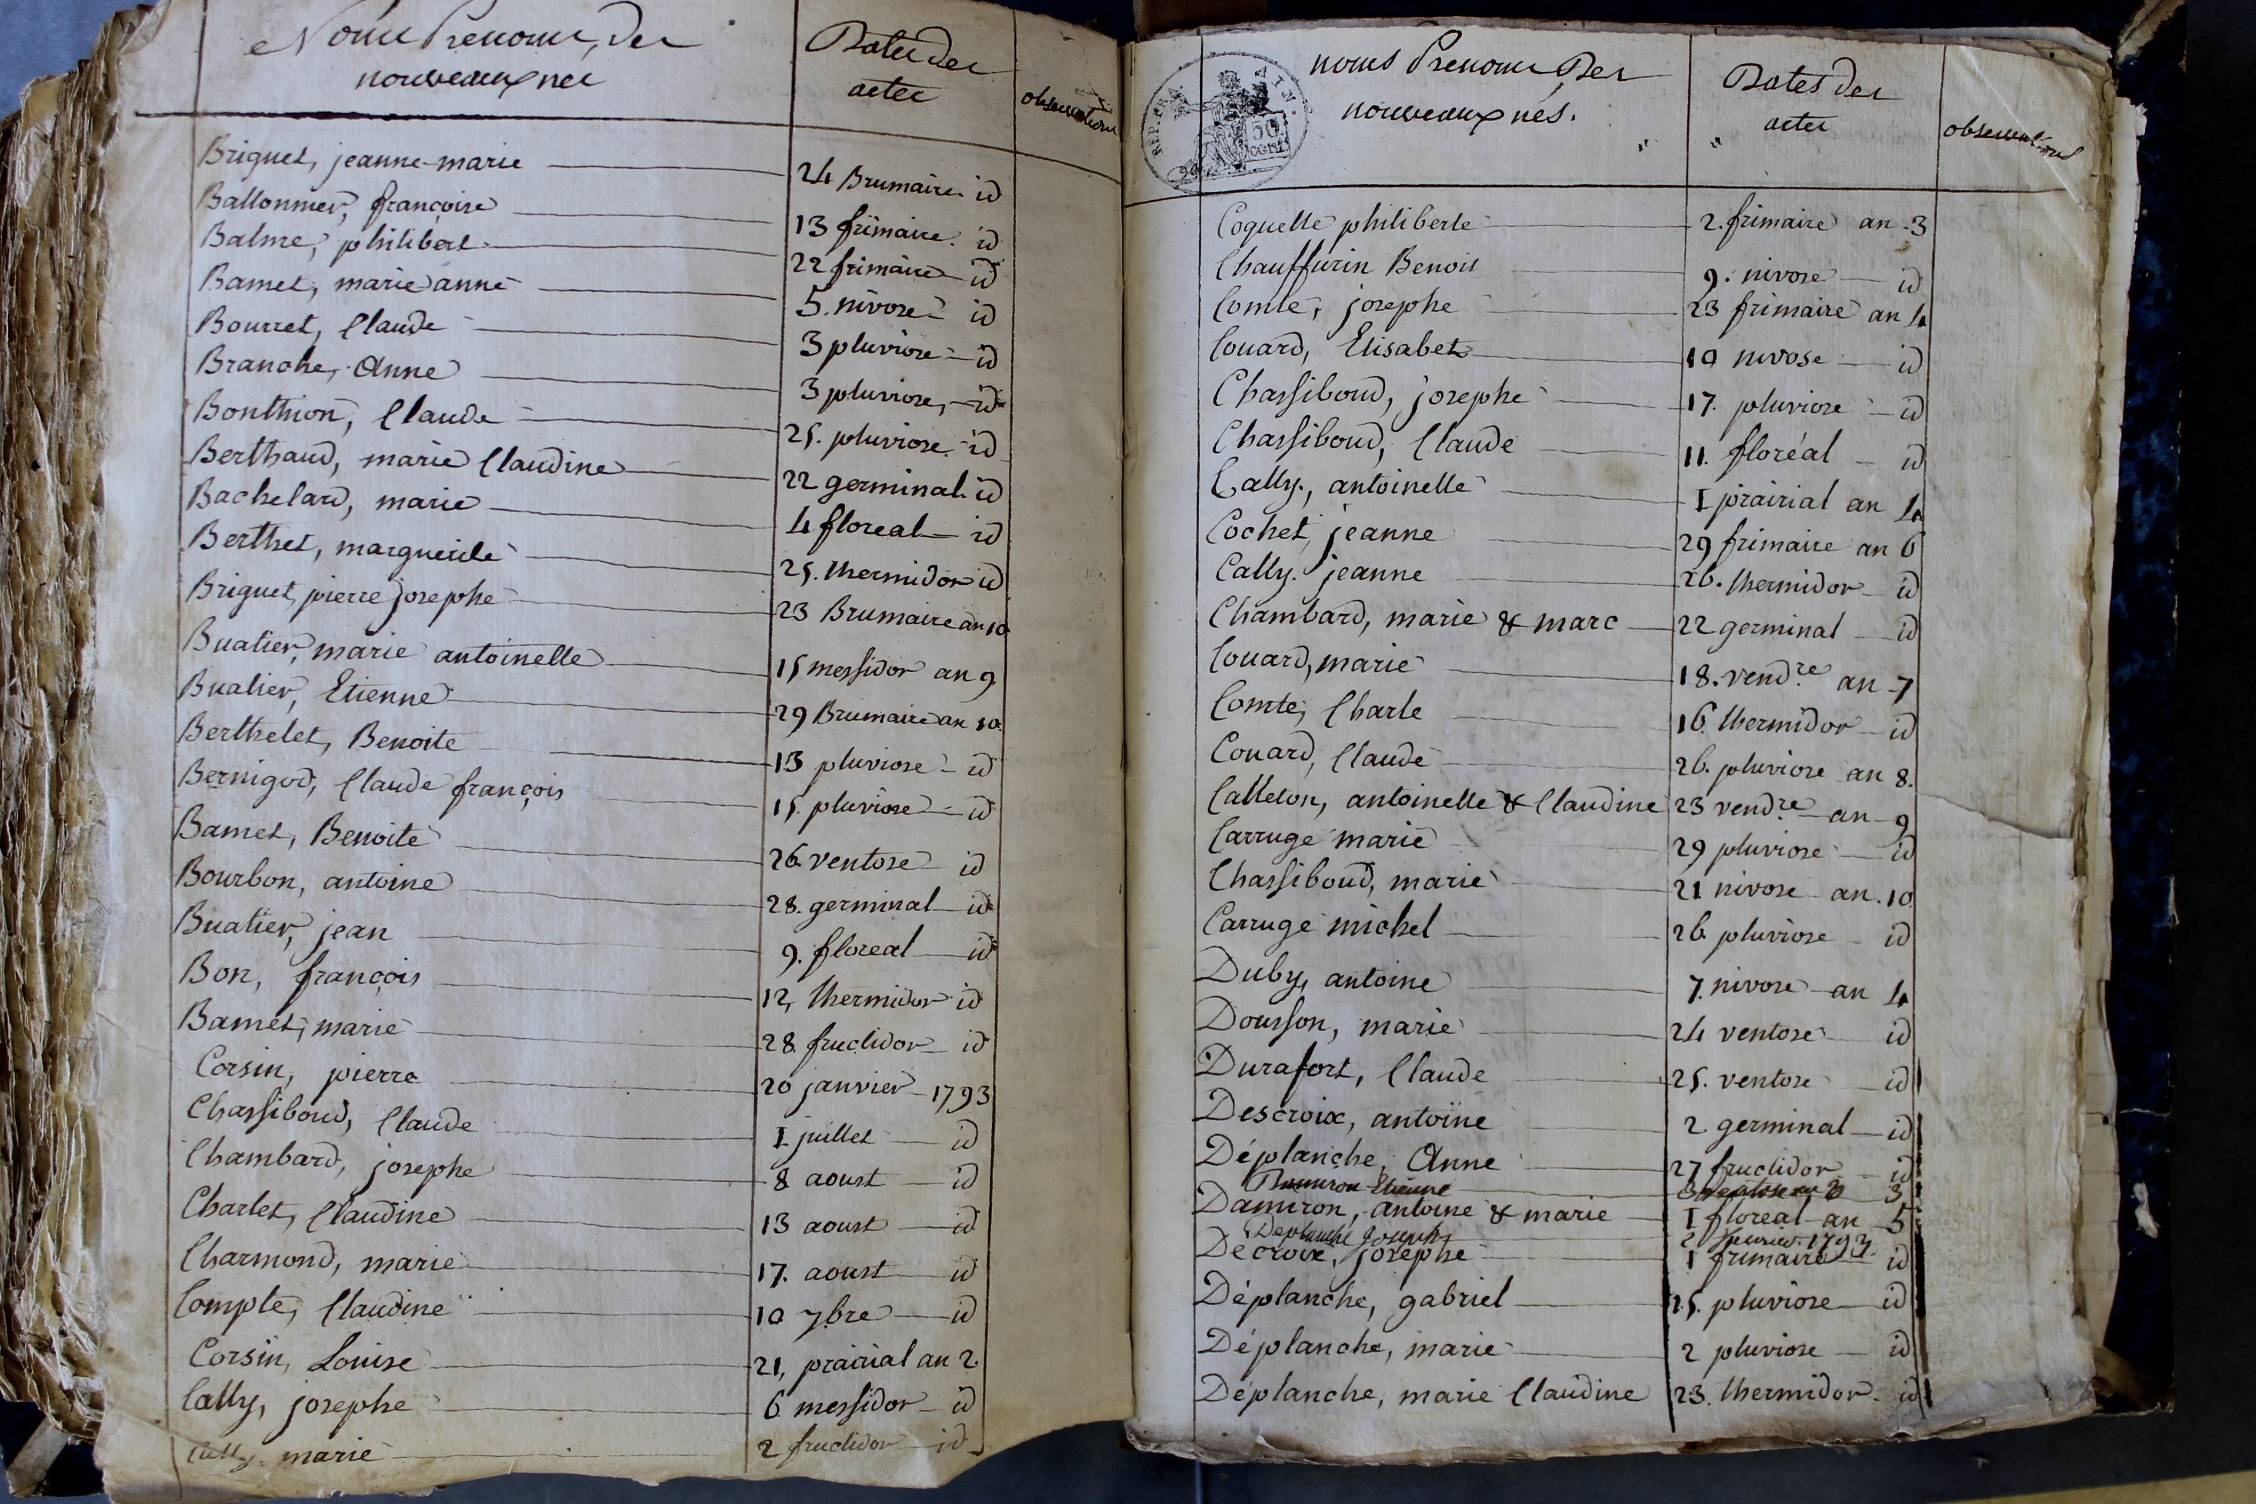 Noms Prenoms des
nouveaux nes
Dates des
actes
observations
Briguet, jeanne-marie 24 Brumaire id
Ballonnier, françoise 13 frimaire. id
Balme, philibert 22 frimaire id
Bamet, marie anne 5. nivose id
Bourret, Claude 3 pluviose id
Branche, Anne 3 pluviose, id
Bonthion, Claude 25. pluviose id
Berthaud, marie Claudine 22 germinal id
Bachelard, marie 4 floreal id
Berthet, marguerite 25. thermidor id
Briguet, pierre josephe 23 Brumaire an 10
Buatier, marie antoinette 15 messidor an 9
Buatier, Etienne 29 Brumaire an 10
Berthelet, Benoite 13 pluviose id
Bernigod, Claude françois 15. pluviose id
Bamet, Benoite 26 ventose id
Bourbon, antoine 28. germinal id
Buatier, jean 9. floreal id
Bon, françois 12, thermidor id
Bamet, marie 28 fructidor id
Corsin, pierre 20 janvier 1793
Chassiboud, Claude 1 juillet id
Chambard, josephe 8 aoust id
Charlet, Claudine 13 aoust id
Charmond, marie 17. aoust id
Compte, Claudine 10 7bre id
Corsin, Louise 21, prairial an 2.
Cally, josephe 6 messidor id
Cally. marie 2 fructidor id
REP. FRA. AIN.
50
CENT
noms Prenoms Des
nouveaux nés.
Dates des
actes
observations
Coquette philiberte 2. frimaire an 3
Chauffurin Benoit 9. nivose id
Comte, josephe 23 frimaire an 4
Couard, Elisabet 10 nivose id
Chassiboud, josephe 17. pluviose id
Chassiboud, Claude 11. floréal id
Cally, antoinette 1 prairial an 4
Cochet, jeanne 29 frimaire an 6
Cally. jeanne 26. thermidor id
Chambard, marie & marc 22 germinal id
Couard, marie 18. vendre an 7
Comte, Charle 16. thermidor id
Couard, Claude 26. pluviose an 8.
Calleton, antoinette & Claudine 23 vendre an 9
Carruge marie 29 pluviose id
Chassiboud, marie 21 nivose an. 10
Carruge michel 26 pluviose id
Duby, antoine 7. nivose an 4
Dousson, marie 24 ventose id
Durafort, Claude 25. ventose id
Descroix, antoine 2 germinal id
Déplanche, Anne 27 fructidor id
Damiron Etienne 3
Damiron, antoine & marie 1 floreal an 5
Deplanche Joseph 2 fevrier 1793
Decroix, josephe 1 frimaire id
Déplanche, gabriel 15. pluviose id
Déplanche, marie 2 pluviose id
Déplanche, marie Claudine 23. thermidor id